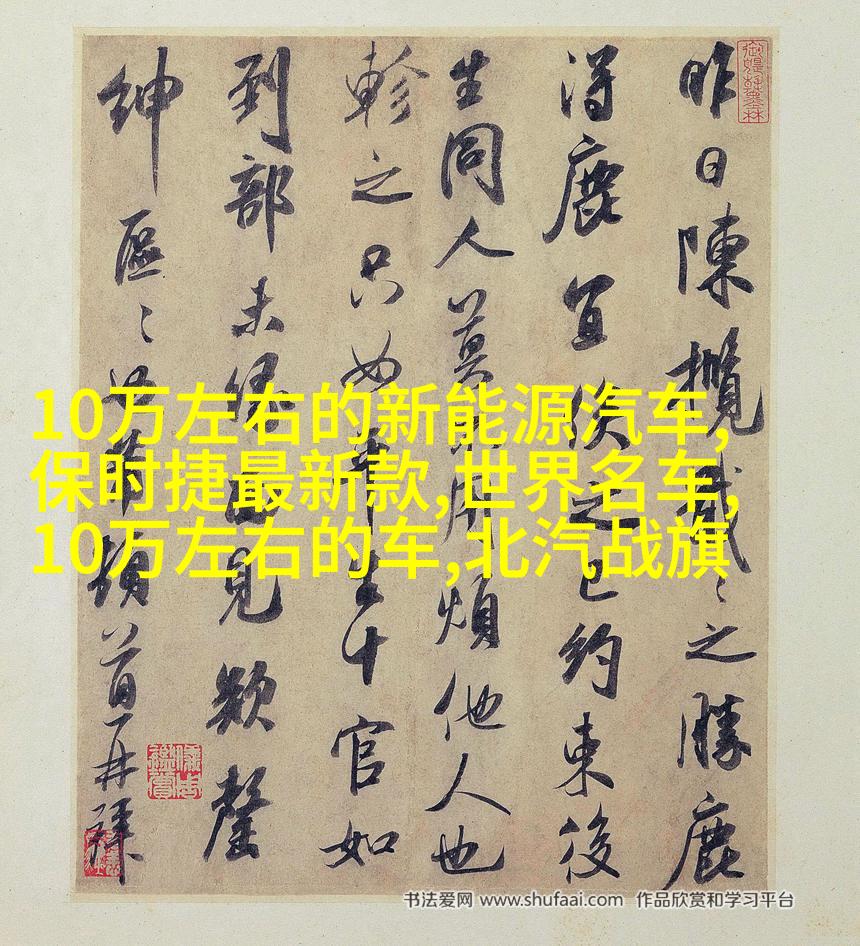 10万左右的新能源汽车,
保时捷最新款,世界名车,
10万左右的车,北汽战旗
昨日陳攬戢〻之勝鹿
得鹿宜之已約束後
生同人莫用煩他人也
軫之只如十官如
到部未緣見欵罄
紳區〻頓首再拜
书法爱网 www.shufaai.com 作品欣赏和学习平台